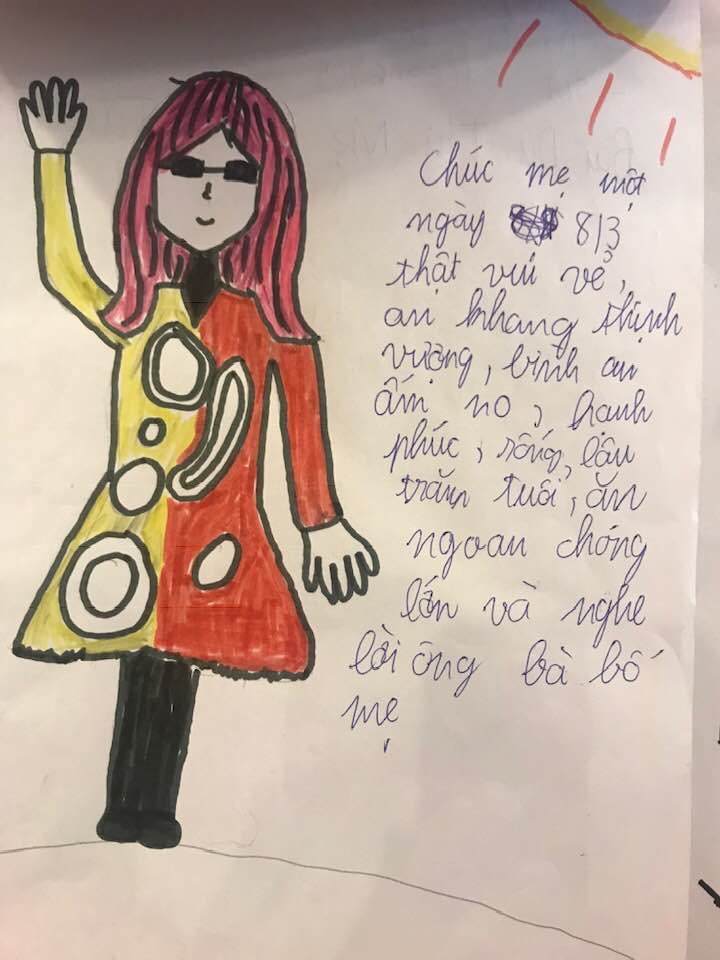 Chúc mẹ một
ngày 8/3
thật vui vẻ,
an khang thịnh
vượng, bình an
ấm no, hạnh
phúc, sống lâu
trăm tuổi, ăn
ngoan chóng
lớn và nghe
lời ông bà bố
mẹ